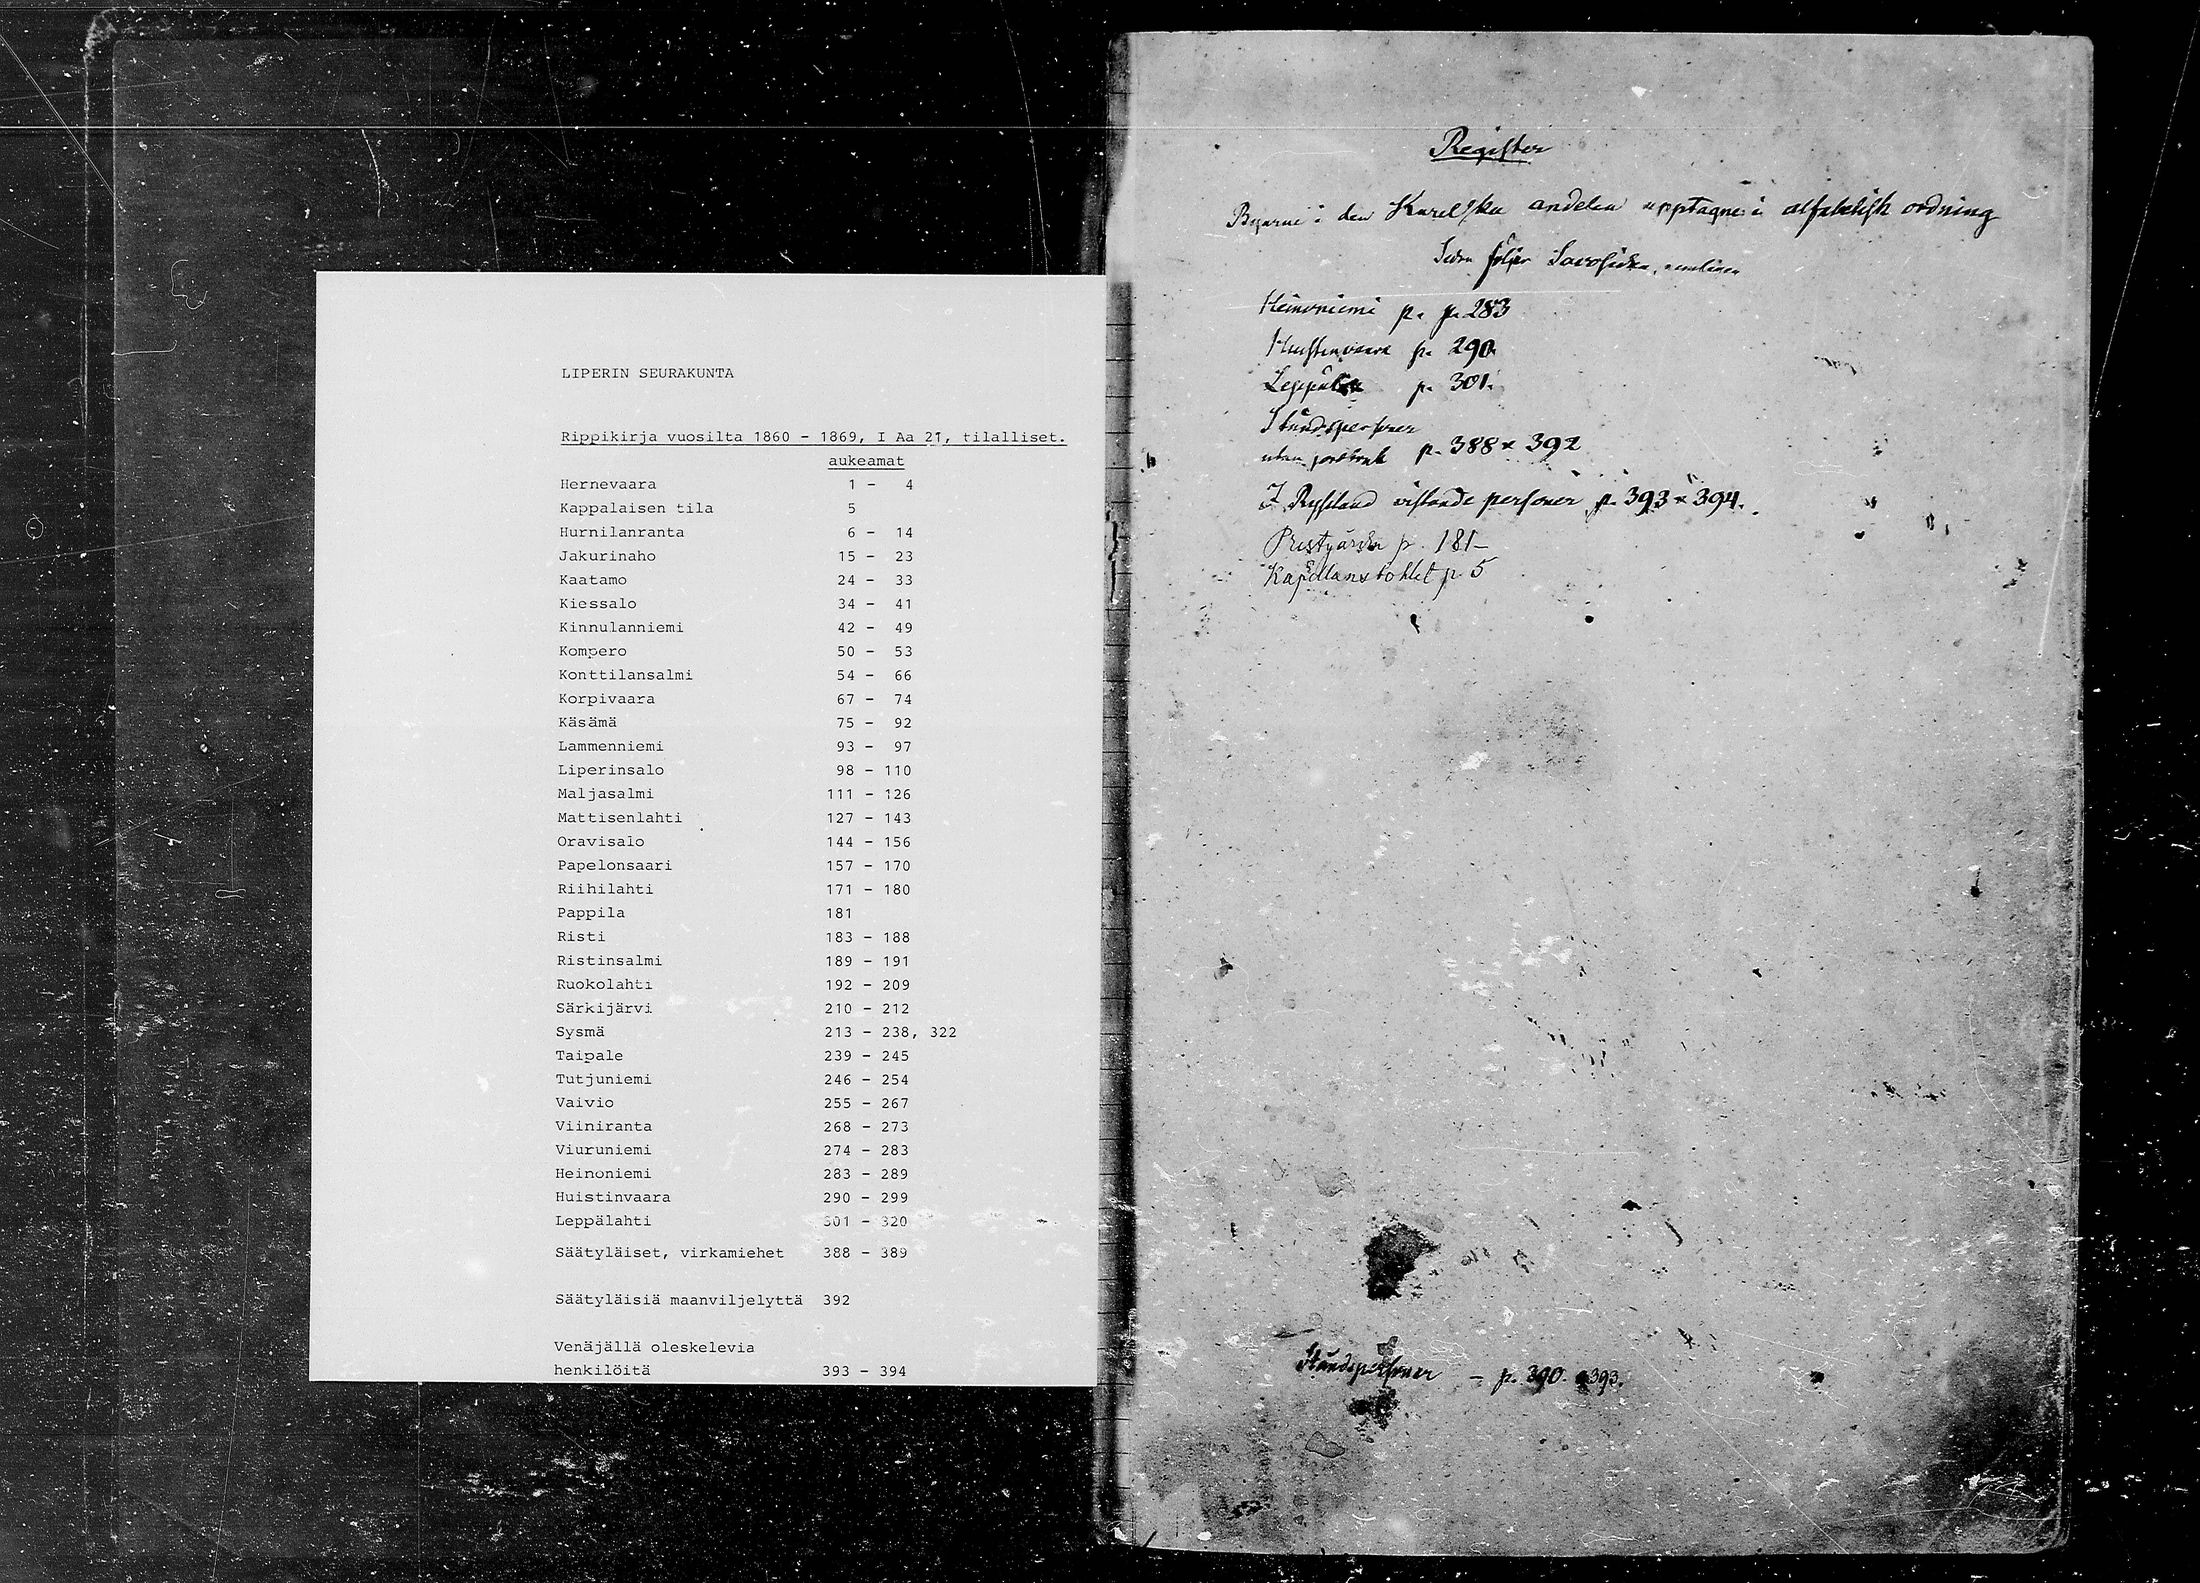 LIPERIN SEURAKUNTA
Rippikirja vuosilta 1860 - 1869, I Aa 21, tilalliset.
aukeamat
Hernevaara 1 - 4
Kappalaisen tila 5
Hurnilanranta 6 - 14
Jakurinaho 15 - 23
Kaatamo 24 - 33
Kiessalo 34 - 41
Kinnulanniemi 42 - 49
Kompero 50 - 53
Konttilansalmi 54 - 66
Korpivaara 67 - 74
Käsämä 75 - 92
Lammenniemi 93 - 97
Liperinsalo 98 - 110
Maljasalmi 111 - 126
Mattisenlahti 127 - 143
Oravisalo 144 - 156
Papelonsaari 157 - 170
Riihilahti 171 - 180
Pappila 181
Risti 183 - 188
Ristinsalmi 189 - 191
Ruokolahti 192 - 209
Särkijärvi 210 - 212
Sysmä 213 - 238, 322
Taipale 239 - 245
Tutjuniemi 246 - 254
Vaivio 255 - 267
Viiniranta 268 - 273
Viuruniemi 274 - 283
Heinoniemi 283 - 289
Huistinvaara 290 - 299
Leppälahti 301 - 320
Säätyläiset, virkamiehet 388 - 389
Säätyläisiä maanviljelyttä 392
Venäjällä oleskelevia
henkilöitä 393 - 394
Register
Byarne i den Karelska andelen upptagne i alfabetisk ordning
Sedan följer Savolidea, nemligen
Heinoniemi p. p. 283
Huistinvaara p. 290.
p. 301.
Ståndspersoner
utan jordbruk p. 388 x 392
I Ryssland vistande personer p. 393 x 394.
Prestgården p. 181-
Kapellansbohlet p. 5
Ståndspersoner - p. 390. 393.